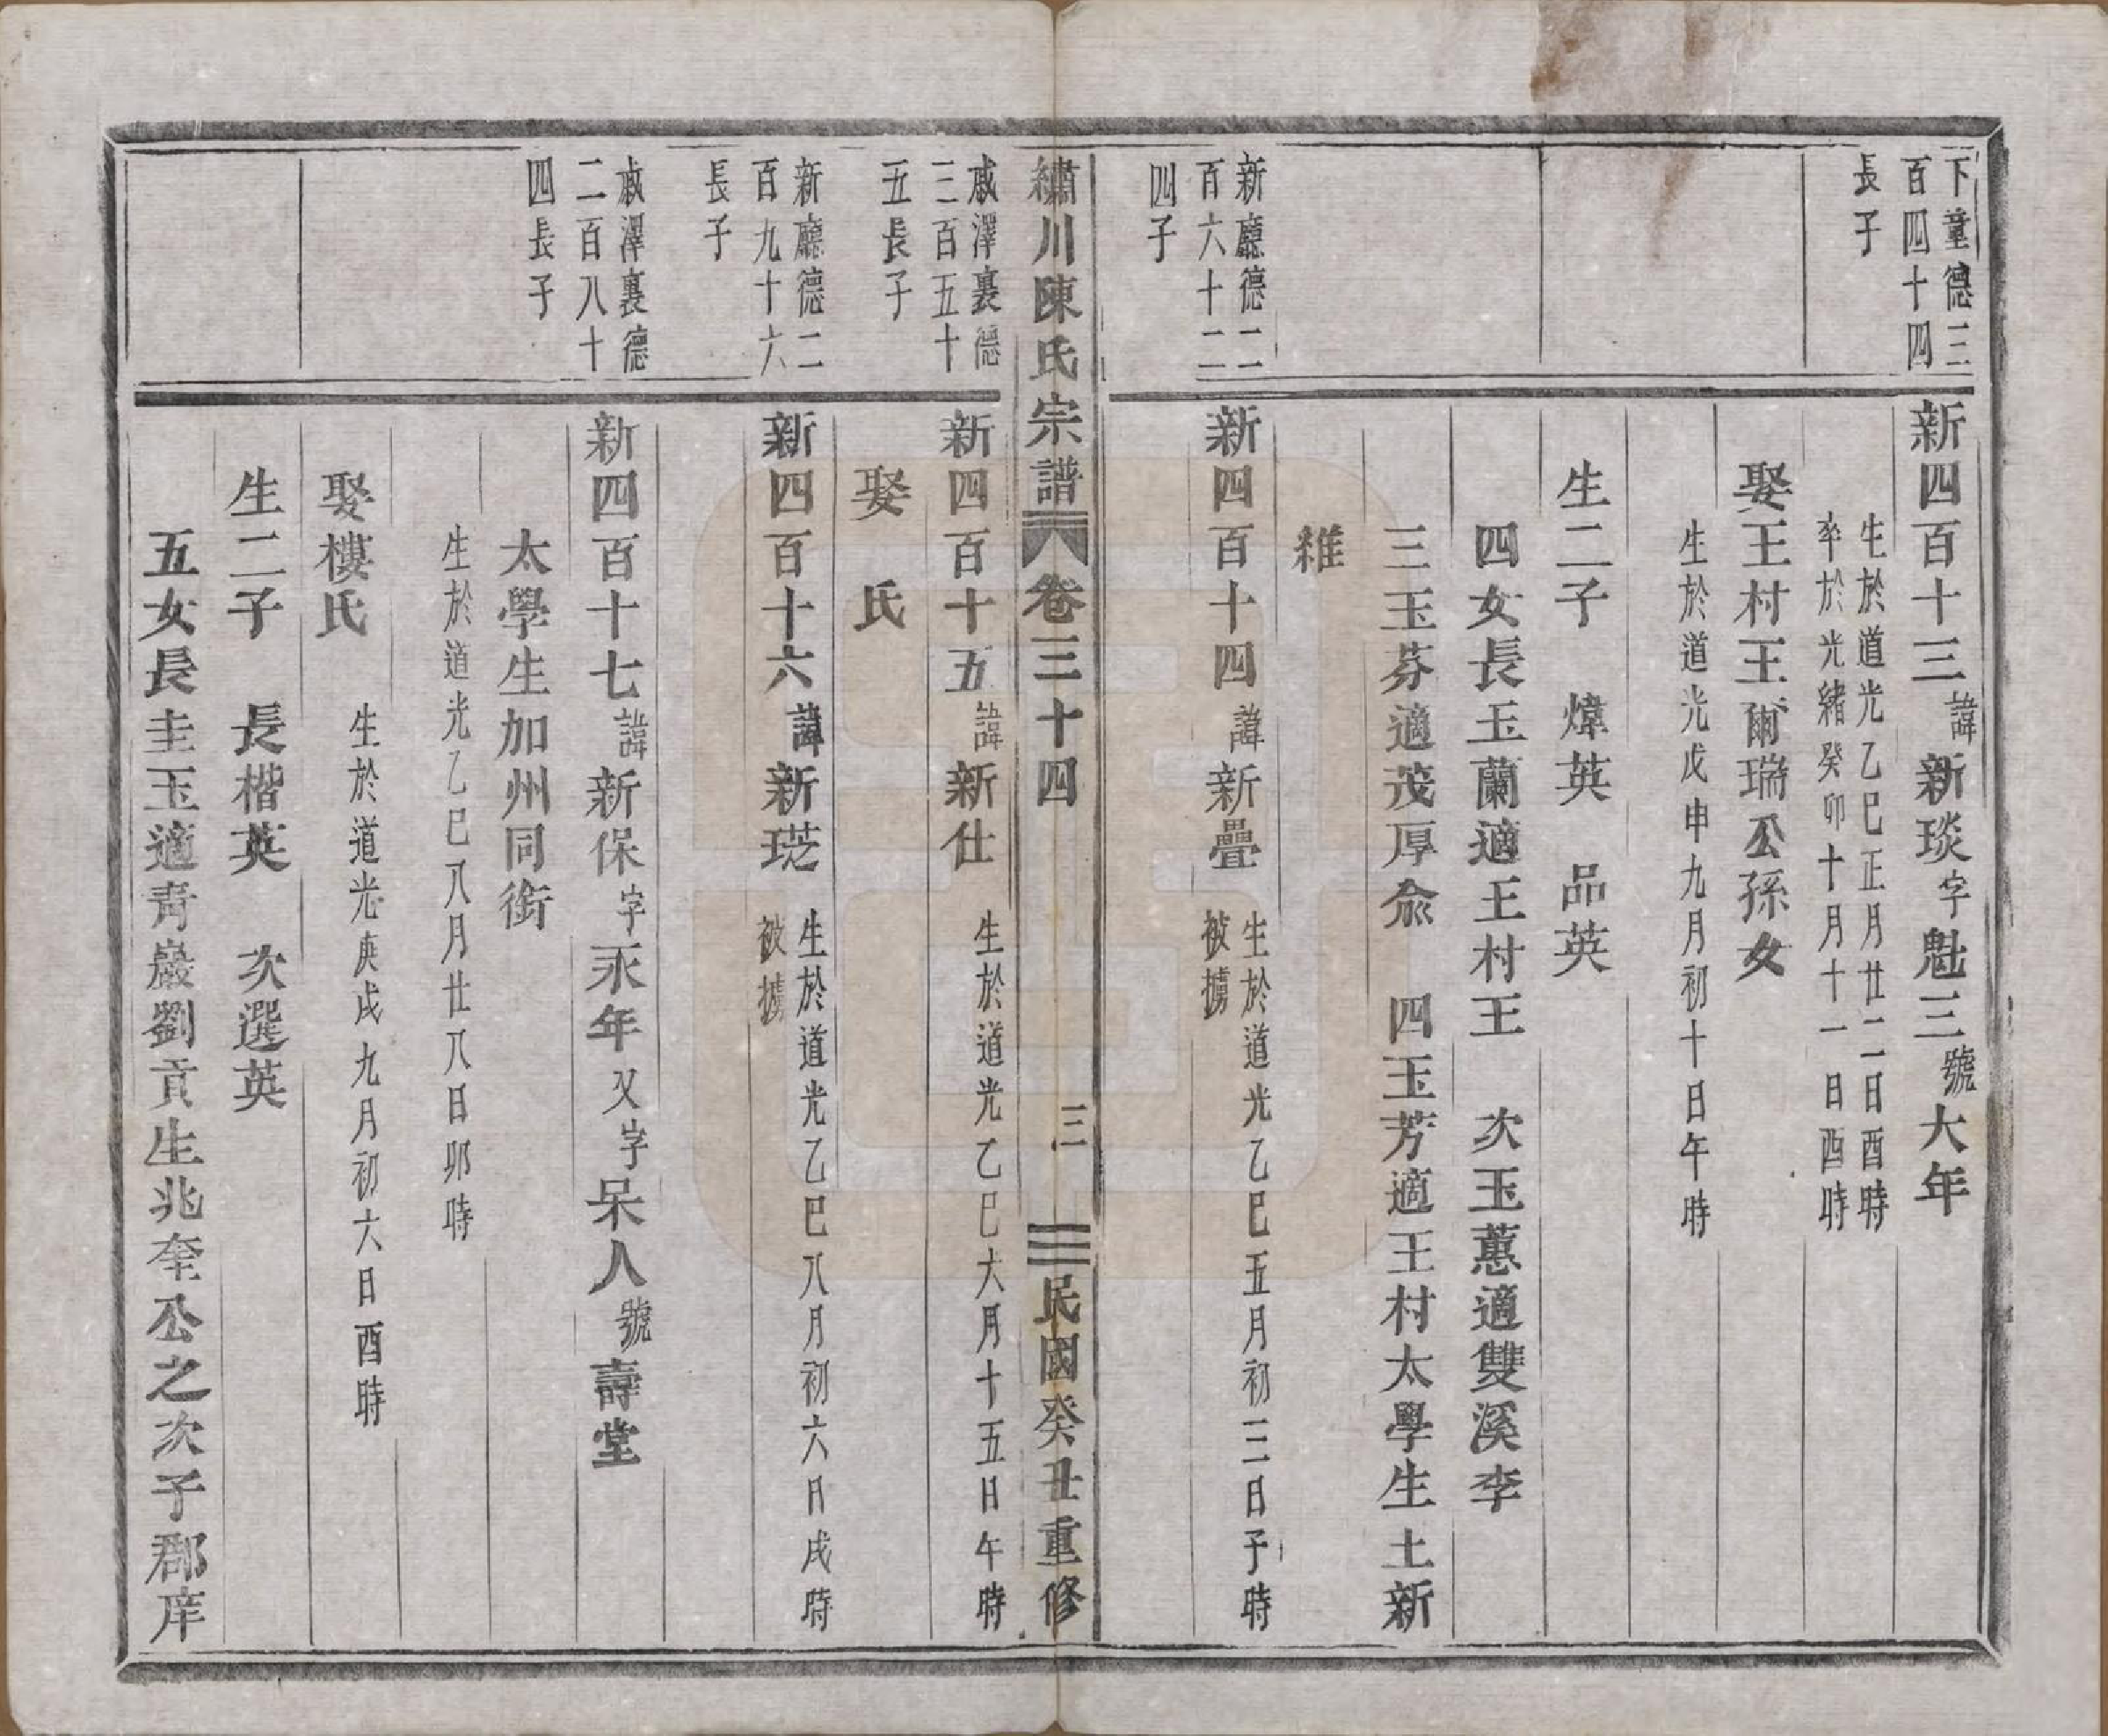 下童德三
百四十四
長子
新四百十三諱新琰字魁三號大年
生於道光乙巳正月廿二日酉時
卒於光緒癸卯十月十一日酉時
娶王村王爾瑞公孫女
生於道光戊申九月初十日午時
生二子　煒英　品英
四女長玉蘭適王村王　次玉蕙適雙溪李
三玉芬適茂厚俞　四玉芳適王村太學生土新
新廳德二
百六十二
四子
新四百十四諱新疊
生於道光乙巳五月初三日子時
被擄
繡川陳氏宗譜　卷三十四　三　民國癸丑重修
戚澤裏德
三百五十
五長子
新四百十五諱新仕
生於道光乙巳六月十五日午時
娶　氏
新廳德二
百九十六
長子
新四百十六諱新琵
生於道光乙巳八月初六日戌時
被擄
戚澤裏德
二百八十
四長子
新四百十七諱新保字永年又字呆人號壽堂
太學生加州同銜
生於道光乙巳八月廿八日卯時
娶樓氏
生於道光庚戌九月初六日酉時
生二子　長楷英　次選英
五女長圭玉適青巖劉貢生兆奎公之次子郡庠